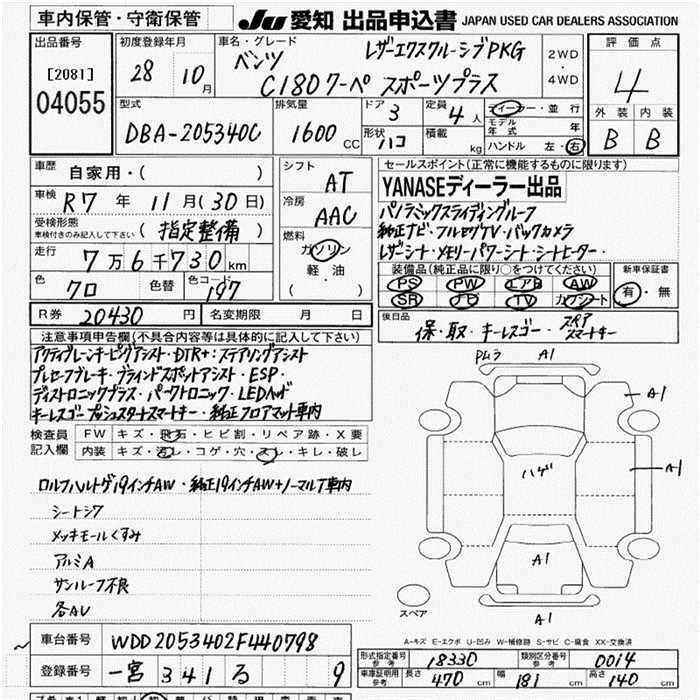 車内保管・守衛保管
JU 愛知 出品申込書 JAPAN USED CAR DEALERS ASSOCIATION
出品番号
[2081]
04055
初度登録年月
28年 10月
車名・グレード
ベンツ レザーエクスクルーシブPKG
C180クーペ スポーツプラス
2WD
・
4WD
評価点
4
外装 内装
B B
型式
DBA-205340C
排気量
1600 CC
ドア 3
形状 ハコ
定員 4人
積載 kg
ディーラー・並行
モデル年式 年
ハンドル 左・右
車歴 自家用・( )
車検 R7年 11月(30日)
受検形態
車検付きのみ記入して下さい ( 指定整備 )
走行 7万6千730km
色 クロ 色替 色コード 197
R券 20430円 名変期限 月 日
シフト AT
冷房 AAC
燃料
ガソリン
軽油
( )
セールスポイント(正常に機能するものに限ります)
YANASEディーラー出品
パノラミックスライディングルーフ
純正ナビ・フルセグTV・バックカメラ
レザーシート・メモリーパワーシート・シートヒーター・
装備品(純正品に限り○をつけてください)
PS PW エアB AW
SR ナビ TV カワシート
新車保証書
有・無
後日品
保・取・キーレスゴー・スペアスマートキー
注意事項申告欄(不具合内容等は具体的に記入して下さい)
アクティブレーンキーピングアシスト・DTR+:ステアリングアシスト
プレセーフブレーキ・ブラインドスポットアシスト・ESP・
ディストロニックプラス・パークトロニック・LEDヘッド
キーレスゴープッシュスタートスマートキー・純正フロアマット車内
検査員記入欄
FW キズ・飛石・ヒビ割・リペア跡・X要
内装 キズ・汚レ・コゲ・穴・スレ・キレ・破レ
ロルフハルトゲ19インチAW・純正19インチAW+ノーマルT車内
シートシワ
メッキモールくすみ
アルミA
サンルーフ不良
各AU
PMムラ A1
A1
A1
ハゲ
A1
A1
スペア
A-キズ E-エクボ U-凹み W-補修跡 S-サビ C-腐食 XX-交換済
車台番号 WDD2053402F440798
登録番号 一宮 341 る 9
形式指定番号 参考 18330 類別区分番号 参考 0014
車庫証明用 参考 長さ 470cm 幅 181cm 高さ 140cm